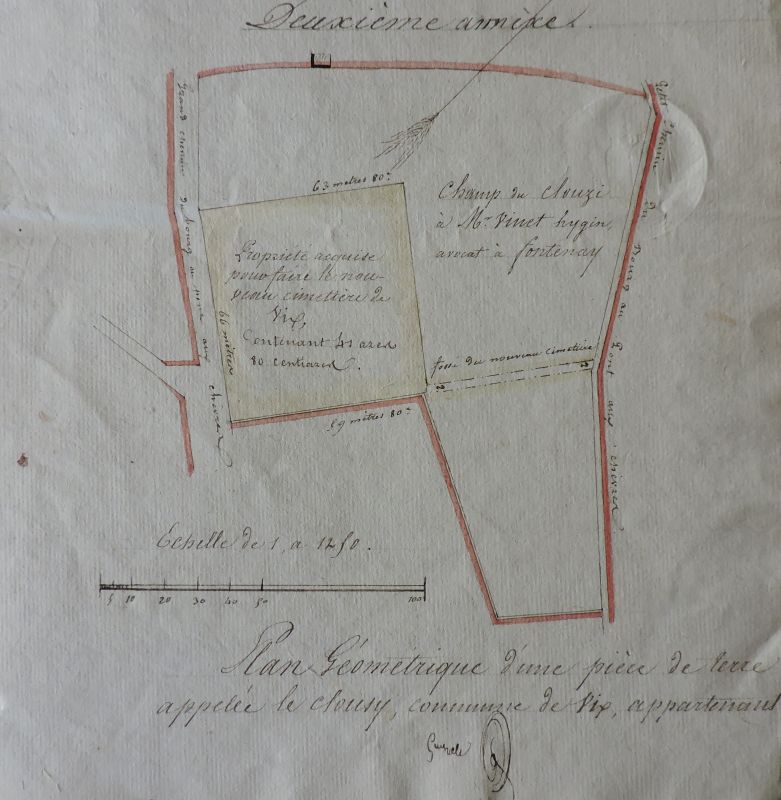 Deuxième annexe.
Grand chemin du bourg au pont aux chèvres
Petit Chemin du Bourg au Pont aux chèvres
63 mètres 80c
Champ du clouzi
à Mr Vinet hygin,
avocat à fontenay
Propriété acquise
pour faire le nou-
veau cimetière de
Vix,
Contenant 41 ares
80 centiares.
66 mètres
fossé du nouveau cimetière
2
2
59 mètres 80c
Echelle de 1 a 1250.
5 10 20 30 40 50 100
Plan Géométrique d'une pièce de terre
appelée le clousy, commune de Vix, appartenant